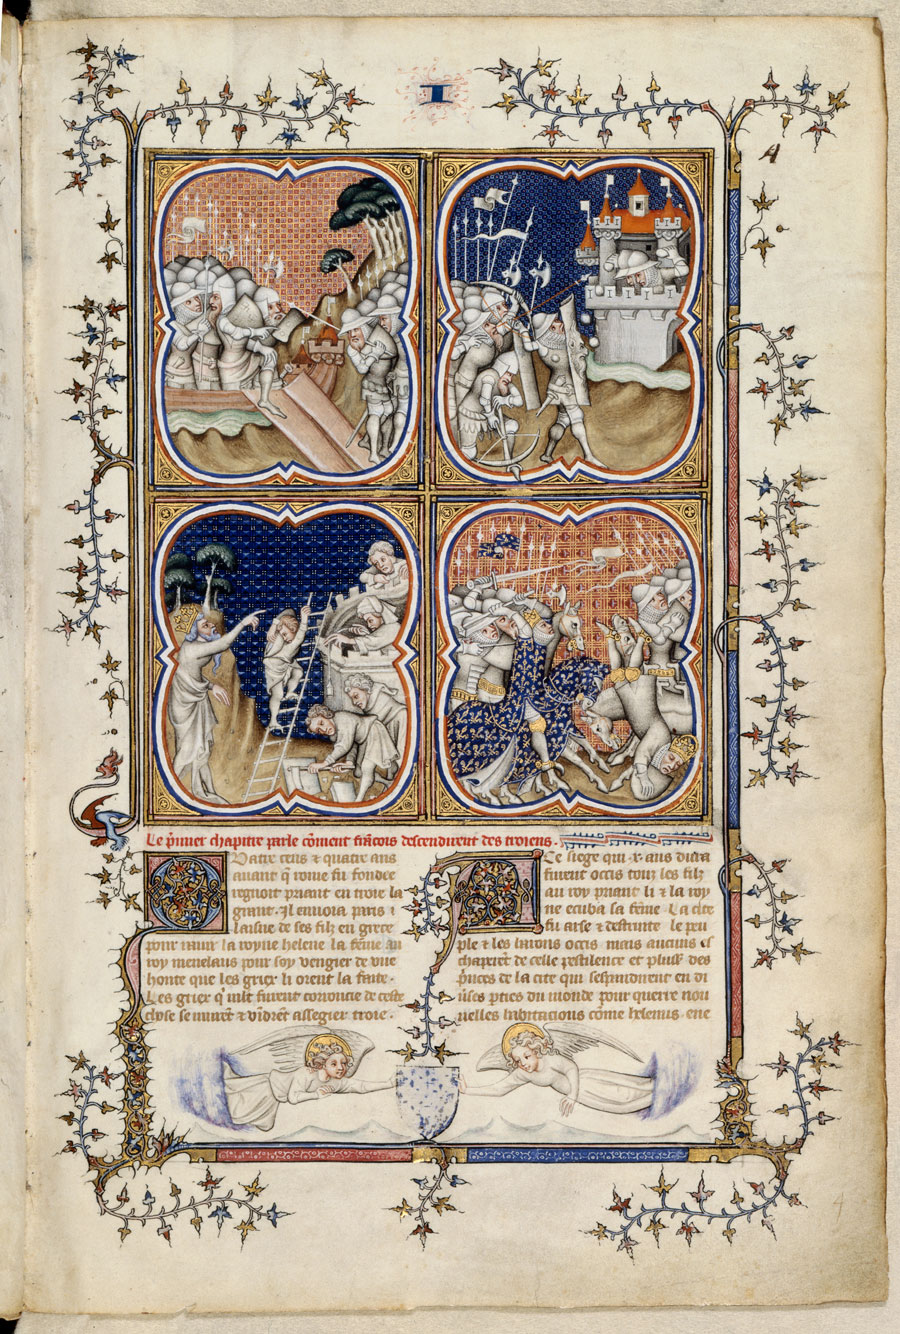 I
A
Le p̃mier chapitre parle cõment frãcois descendirent des troiens.
Quatre cens & quatre ans
auant q̃ rome fu fondee
regnoit priant en troie la
grant. Il enuoia paris
laisne de ses filz en grece
pour rauir la royne helene la fẽme au
roy menelaus pour soy vengier de vne
honte que les griex li orent la faite.
Les griex q̃ mult furent corroucie de ceste
chose se murẽt & vindrẽt assegier troie.
A ce siege qui .x. ans dura
furent occis touz les filz
au roy priant li & la roy
ne ecuba sa fẽme. La cite
fu arse & destruite le peu
ple & les barons occis mais aucuns es
chaperẽt de celle pestilence & plus̃ des
p̃nces de la cite qui sespandirent en di
ũses p̃ties du monde pour querre nou
uelles habitacions cõme helenus. ene